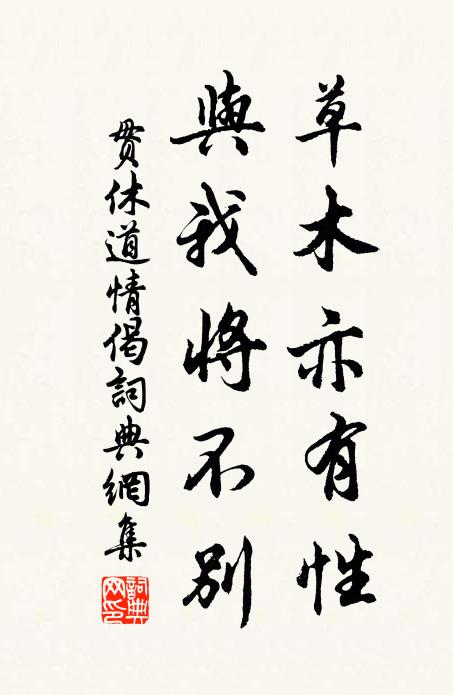 草木亦有性
與我將不別
貫休道情偈詞典網集
詞典網印